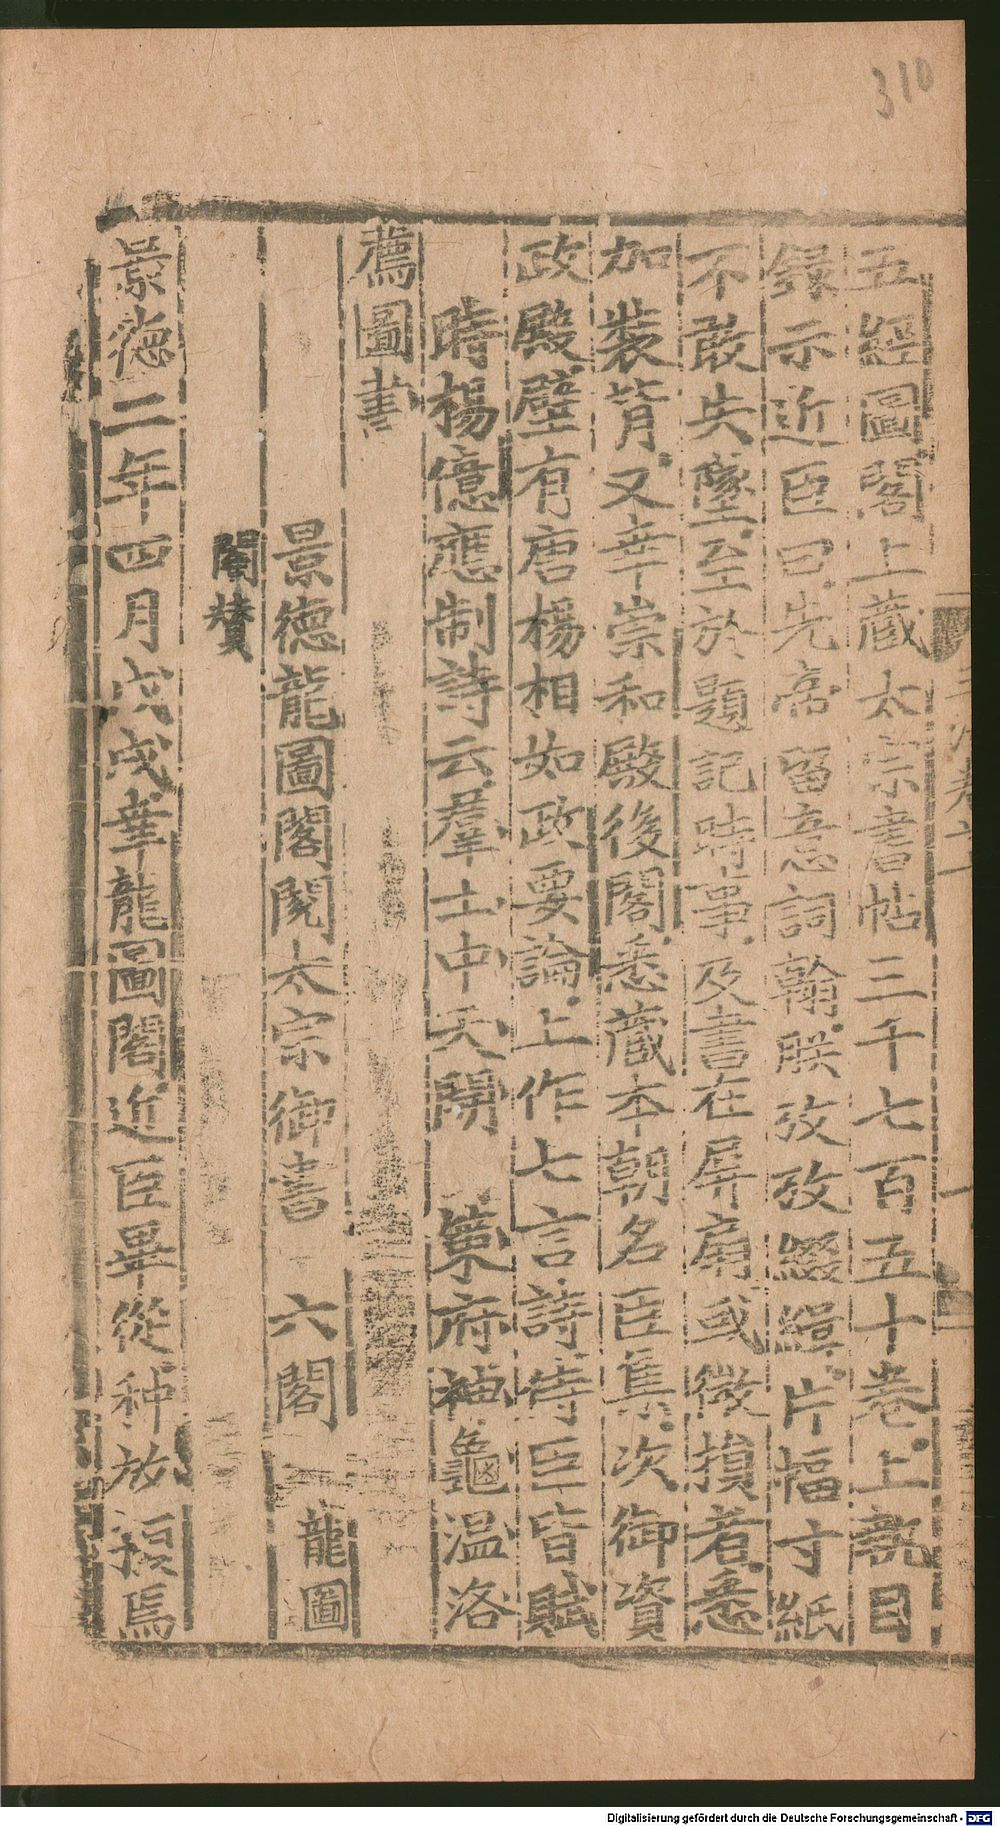 310
五經圖閣上藏太宗書帖三千七百五十卷上執目
録示近臣曰先帝留意詞翰朕孜孜綴緝片幅寸紙
不敢失墜至於題記時事及書在屏扇或微損者悉
加裝背又幸崇和殿後閣悉藏本朝名臣集次御資
政殿壁有唐楊相如政要論上作七言詩侍臣皆賦
時楊億應制詩云羣士中天闢 策府神龜温洛
薦圖書
景德龍圖閣閱太宗御書 六閣 龍圖
閣賛
景德二年四月戊戌幸龍圖閣近臣畢從种放預焉
Digitalisierung gefördert durch die Deutsche Forschungsgemeinschaft - DFG